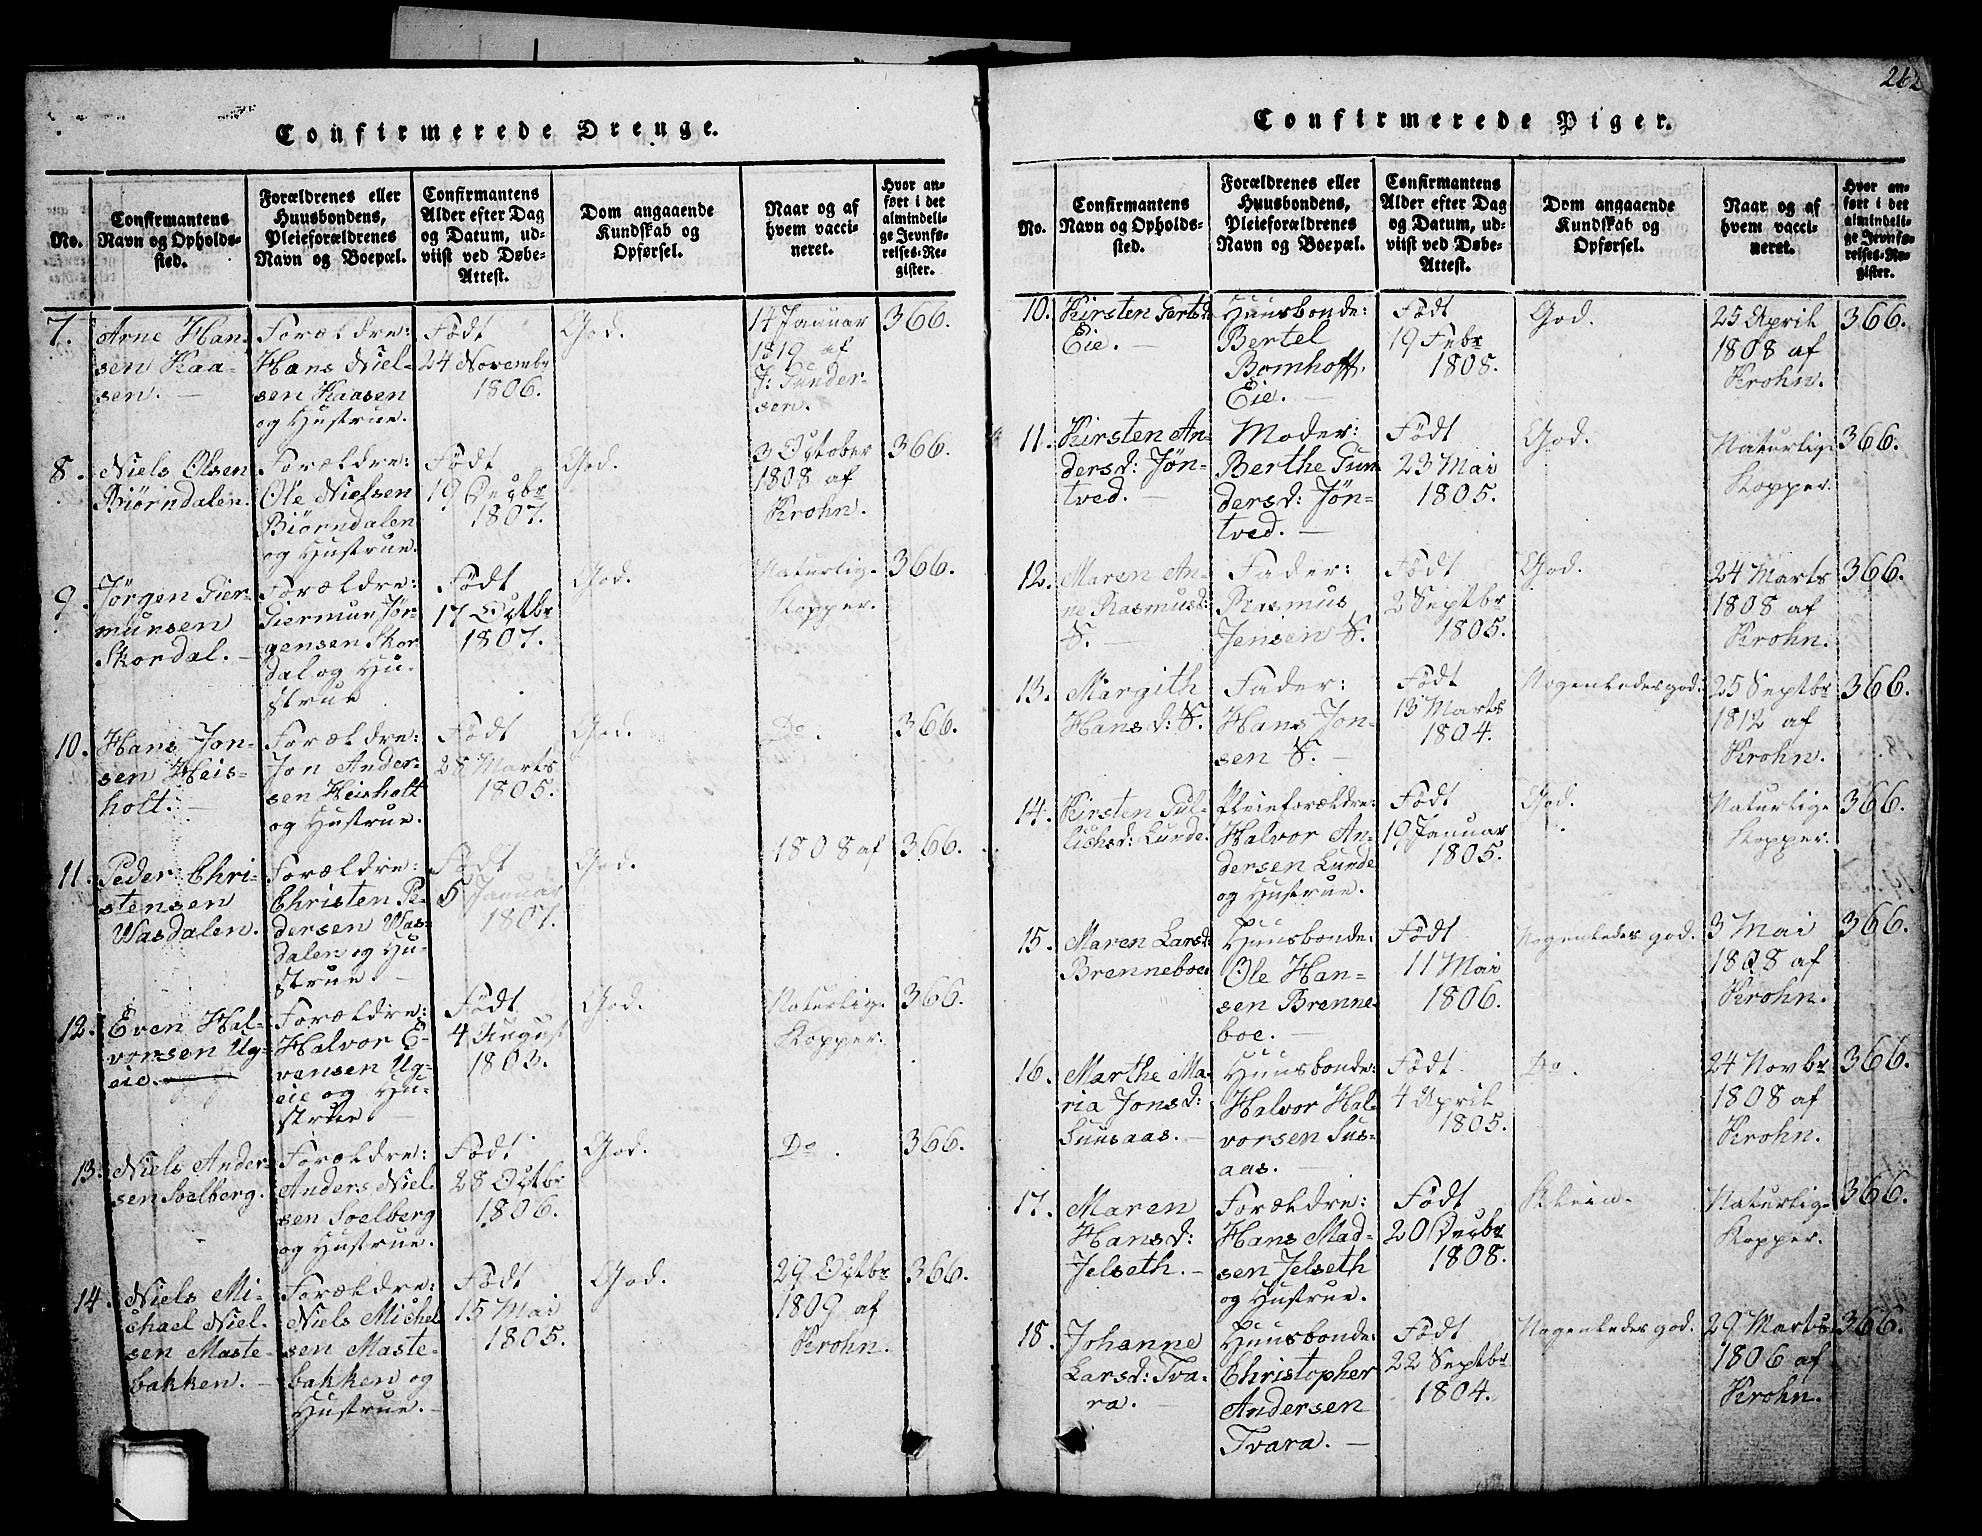 262
Confirmerede Drenge.
No.
Confirmantens
Navn og Opholds-
sted.
Forældrenes eller
Huusbondens,
Pleieforældrenes
Navn og Boepæl.
Confirmantens
Alder efter Dag
og Datum, ud-
viist ved Døbe-
Attest.
Dom angaaende
Kundskab og
Opførsel.
Naar og af
hvem vacci-
neret.
Hvor an-
ført i det
almindeli-
ge Jevnfø-
relses-Re-
gister.
7.
Arne Han-
sen Kaa-
sen. —
Forældre:
Hans Niel-
sen Kaasen
og Hustrue.
Født
24 Novembr
1806.
God.
14 Januar
1819 af
J: Gunder-
sen.
366.
8.
Niels Olsen
Biørndalen.
Forældre:
Ole Nielsen
Biørndalen
og Hustrue.
Født
19 Decbr
1807.
God.
3 October
1808 af
Krohn.
366.
9.
Jørgen Gier-
mundsen
Skordal. —
Forældre:
Giermun Jør-
gensen Skor
dal og Hu-
strue
Født
17 Octbr
1807.
God.
Naturlig-
Kopper.
366.
10.
Hans Jon-
sen Heis-
holt. —
Forældre:
Jon Ander-
sen Heisholt
og Hustrue.
Født
28 Marts
1805.
God.
Do.
366.
11.
Peder Chri-
stensen
Wasdalen.
Forældre:
Christen Pe-
dersen Was-
dalen og Hu-
strue. —
Født
5 Januar
1807.
God.
1808 af
366.
12.
Even Hal-
vorsen Ug-
eie. —
Forældre:
Halvor E-
vensen Ug-
eie og Hu-
strue. —
Født
4 August
1803.
God.
Naturlig-
Kopper.
366.
13.
Niels Ander-
sen Soelberg.
Forældre:
Anders Niel-
sen Soelberg
og Hustrue.
Født
28 Octbr
1806.
God.
Do.
366.
14.
Niels Mi-
chael Niel-
sen Maste-
bakken. —
Forældre:
Niels Michel
sen Maste-
bakken og
Hustrue. —
Født
15 Mai
1805.
God.
29 Octbr
1809 af
Krohn.
366.
Confirmerede Piger.
No.
Confirmantens
Navn og Opholds-
sted.
Forældrenes eller
Huusbondens,
Pleieforældrenes
Navn og Boepæl.
Confirmantens
Alder efter Dag
og Datum, ud-
viist ved Døbe-
Attest.
Dom angaaende
Kundskab og
Opførsel.
Naar og af
hvem vacci-
neret.
Hvor an-
ført i det
almindeli-
ge Jevnfø-
relses-Re-
gister.
10.
Kirsten Gertsd:
Eie. —
Huusbonde:
Bertel
Bomhoff.
Eie. —
Født
19 Febr
1808.
God.
25 April
1808 af
Krohn.
366.
11.
Kirsten An-
dersd: Jøn-
tved. —
Moder:
Berthe Gun
dersd: Jøn-
tved. —
Født
23 Mai
1805.
God.
Naturlig-
Kopper.
366.
12.
Maren An-
ne Rasmusd:
S. —
Fader:
Rasmus
Jensen S.
Født
2 Septbr
1805.
God.
24 Marts
1808 af
Krohn.
366.
13.
Margith
Hansd: S.
Fader:
Hans Jon-
sen S. —
Født
13 Marts
1804.
Nogenledes god.
25 Septbr
1812 af
Krohn.
366.
14.
Kirsten Gul-
lichsd: Lunde.
Pleieforældre:
Halvor An-
dersen Lunde
og Hustrue.
Født
19 Januar
1805.
God.
Naturlig-
Kopper.
366.
15.
Maren Larsd:
Brenneboe.
Huusbonde:
Ole Han-
sen Brenne-
boe. —
Født
11 Mai
1806.
Nogenledes god.
3 Mai
1808 af
Krohn.
366.
16.
Marthe Ma-
ria Jonsd:
Luusaas. —
Huusbonde:
Halvor Hal-
vorsen Lus-
aas. —
Født
4 April
1805.
Do.
24 Novbr
1808 af
Krohn.
366.
17.
Maren
Hansd:
Jelseth. —
Forældre:
Hans Mad-
sen Jelseth
og Hustrue.
Født
20 Decbr
1808.
Slein.
Naturlig-
Kopper.
366.
18.
Johanne
Larsd: Tva-
ra. —
Huusbonde:
Christopher
Andersen
Tvara. —
Født
22 Septbr
1804.
Nogenledes god.
29 Marts
1806 af
Krohn.
366.